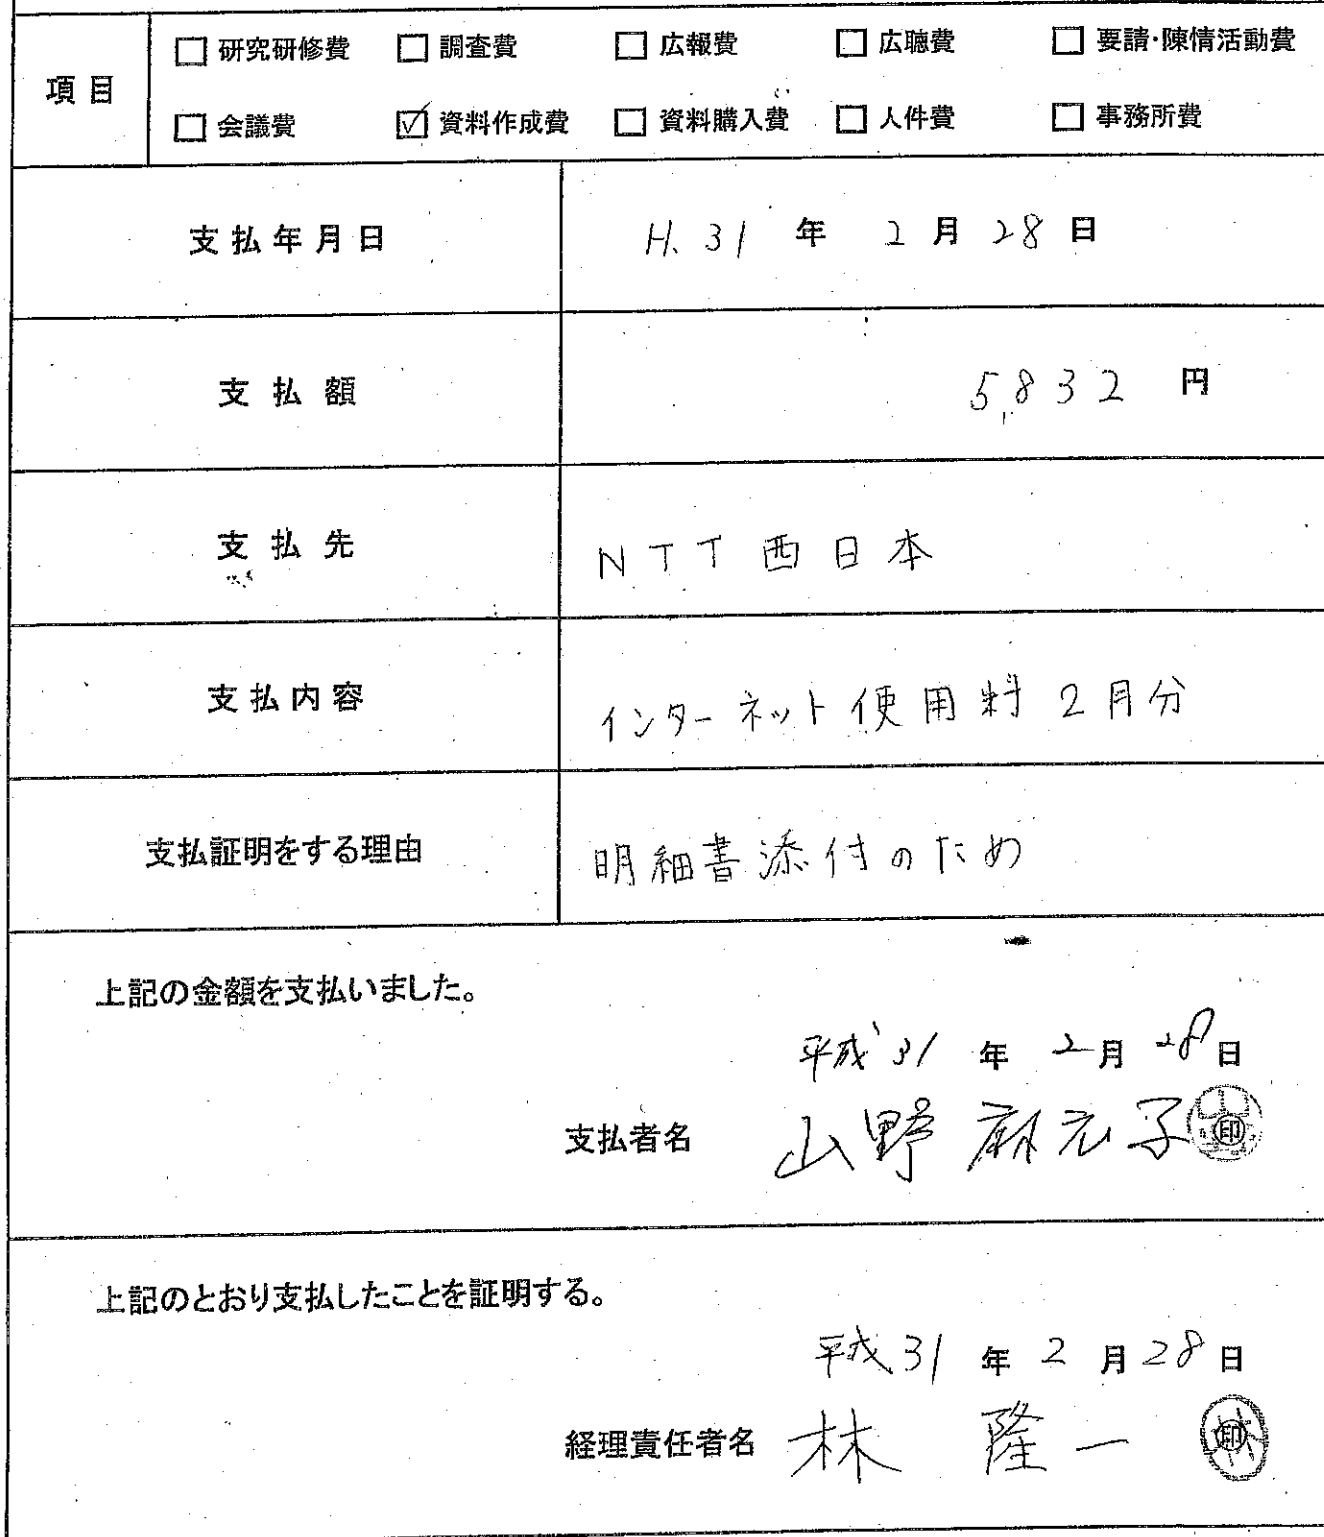 項目
□ 研究研修費 □ 調査費 □ 広報費 □ 広聴費 □ 要請・陳情活動費
□ 会議費 ☑ 資料作成費 □ 資料購入費 □ 人件費 □ 事務所費
支払年月日 H.31 年 2 月 28 日
支払額 5,832 円
支払先 NTT西日本
支払内容 インターネット使用料 2月分
支払証明をする理由 明細書添付のため
上記の金額を支払いました。
平成31 年 2月 28日
支払者名 山野 麻衣子 印
上記のとおり支払したことを証明する。
平成31 年 2 月 28 日
経理責任者名 林 隆一 印